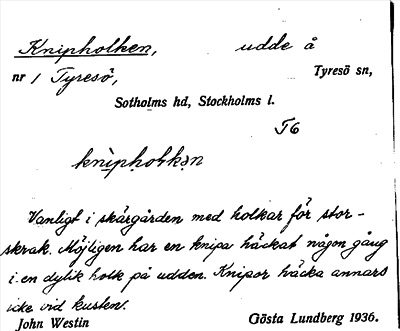 Knipholken, udde å
nr 1 Tyresö, Tyresö sn,
Sotholms hd, Stockholms l.
T6
knìphoḷkən
Vanligt i skärgården med holkar för stor-
skrak. Möjligen har en knipa häckat någon gång
i en dylik holk på udden. Knipor häcka annars
icke vid kusten.
John Westin Gösta Lundberg 1936.